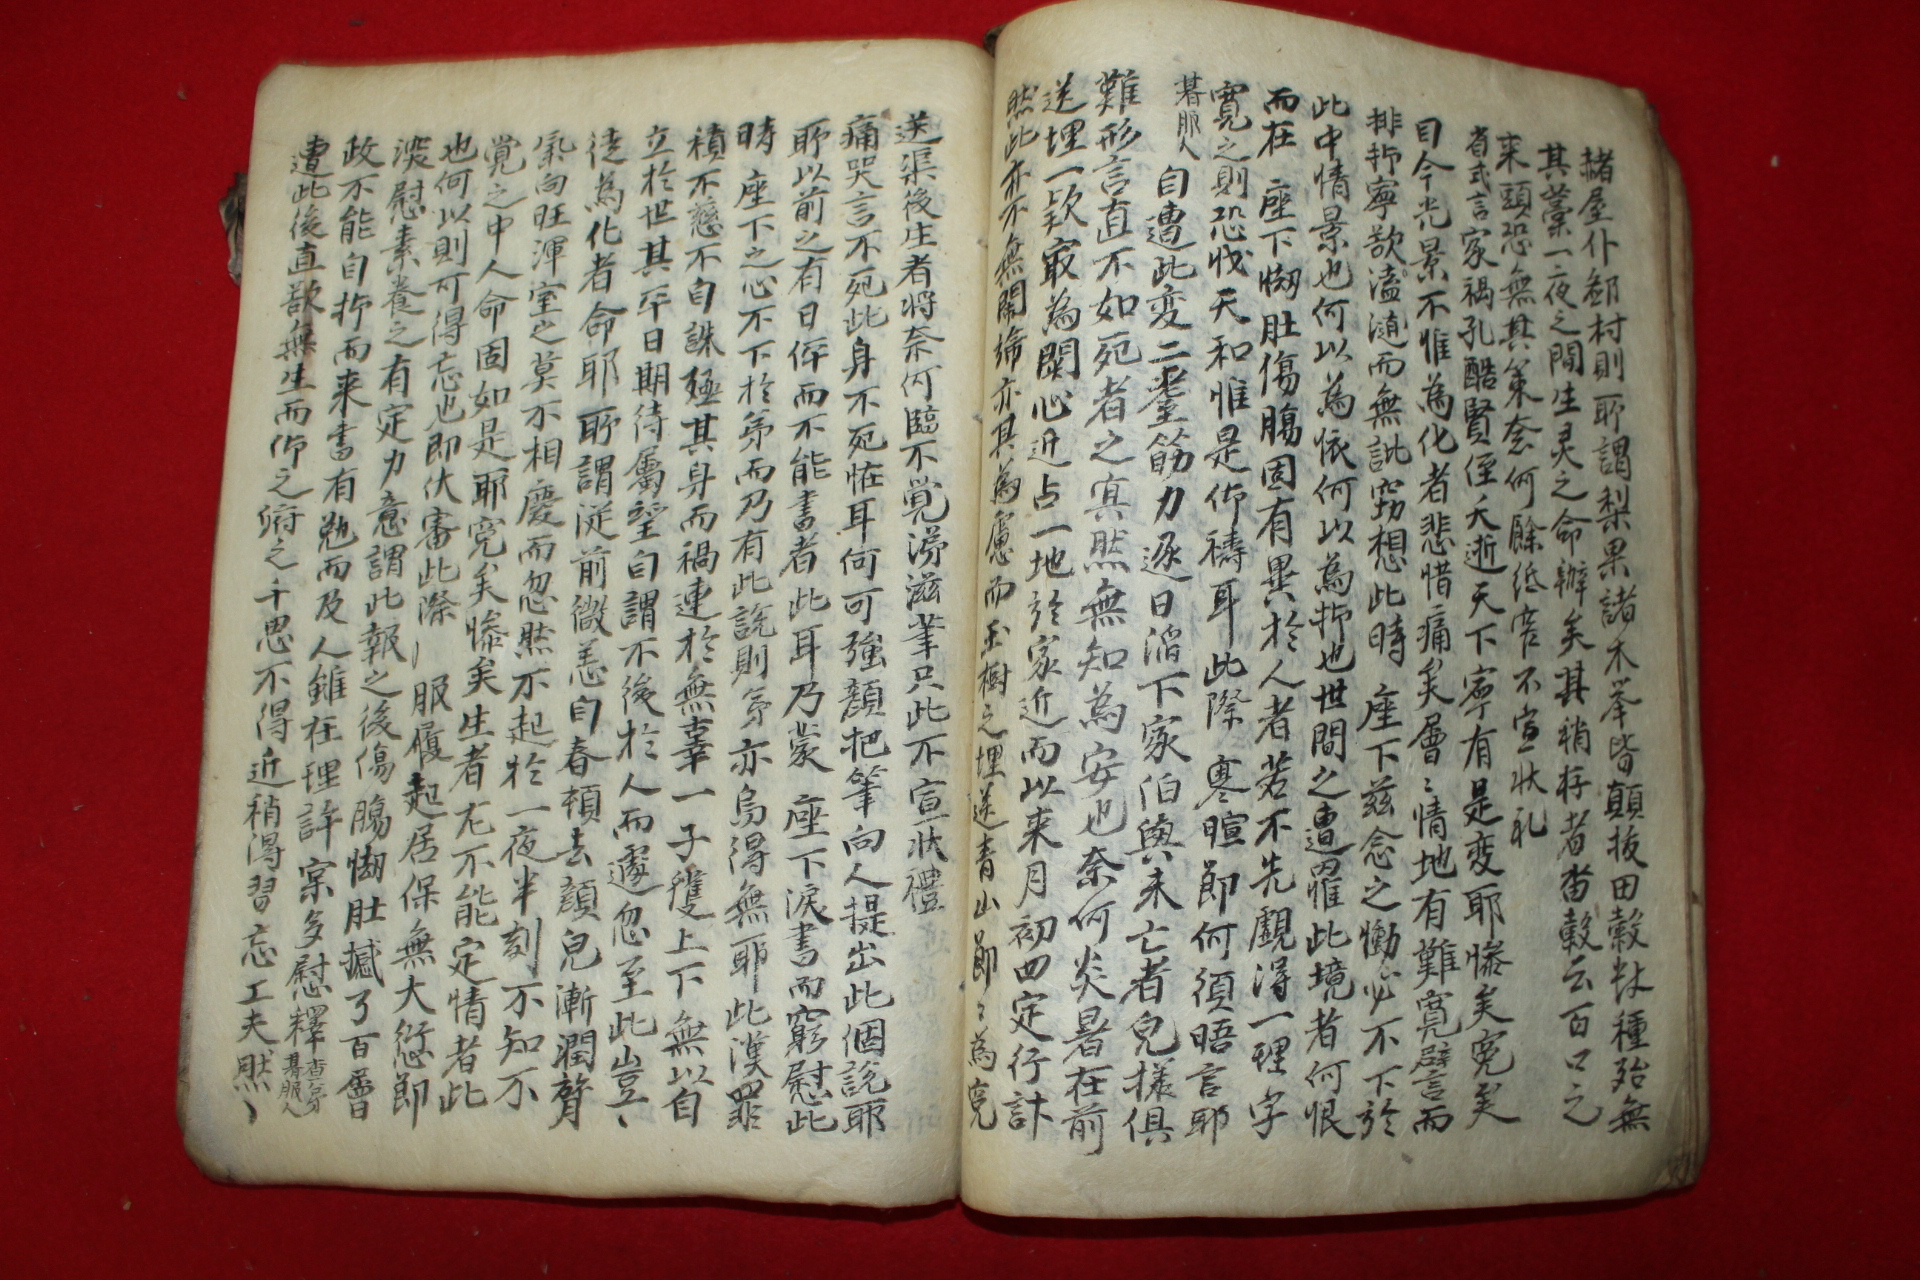 赭屋仆鄒村則所謂梨果諸木擧皆顛拔田穀秋種殆無
其藁一夜之間生灵之命辦矣其稍存者畓穀云百口之
来頭恐無其策奈何餘紙窄不宣狀礼
省式言家禍孔酷賢侄夭逝天下寧有是変耶慘矣寃矣
自今光景不惟為化者悲惜痛矣層〻情地有難寬譬言而
排抑寧欲溘随而無訿竊想此時 座下玆念之慟必不下於
此中情景也何以為依何以為抑也世間之遭罹此境者何恨
而在 座下㤼肚傷膓固有異於人者若不先覷得一理字
寬之則恐伐天和惟是仰禱耳此際 寒暄節何須晤言耶
朞服人 自遭此変二耋筋力逐日澌下家伯與未亡者皃樣俱
難形言直不如死者之冥然無知為安也奈何炎暑在前
送埋一欵最為関心近占一地於家近而以来月初四定行計
然此亦不無関端亦其為慮而玉樹之埋送青山節〻為寃
送渠後生者將奈何臨不覺滂滋筆只此不宣狀禮
痛哭言不死此身不死恠耳何可強顔把筆向人提出此個說耶
所以前之有日伻而不能書者此耳乃蒙 座下淚書而窮慰此
時 座下之心不下於弟而乃有此說則弟亦烏得無耶此漢罪
積不慈不自誅殛其身而禍連於無辜一子使上下無以自
立於世其平日期待屬望自謂不後於人而遽忽至此豈〻
徒為化者命耶所謂従前微恙自春頓去顔皃漸潤聲
氣向旺渾室之莫不相慶而忽然不起於一夜半刻不知不
覺之中人命固如是耶寃矣慘矣生者尤不能定情者此
也何以則可得忘也即伏審此際〻服履起居保無大愆節
深慰素養之有定力意謂此報之後傷膓㤼肚撼了百層
政不能自抑而来書有勉而及人雖在理許寔多慰釋查弟朞服人
遭此後直欲無生而仰之俯之千思不得近稍得習忘工夫然〻